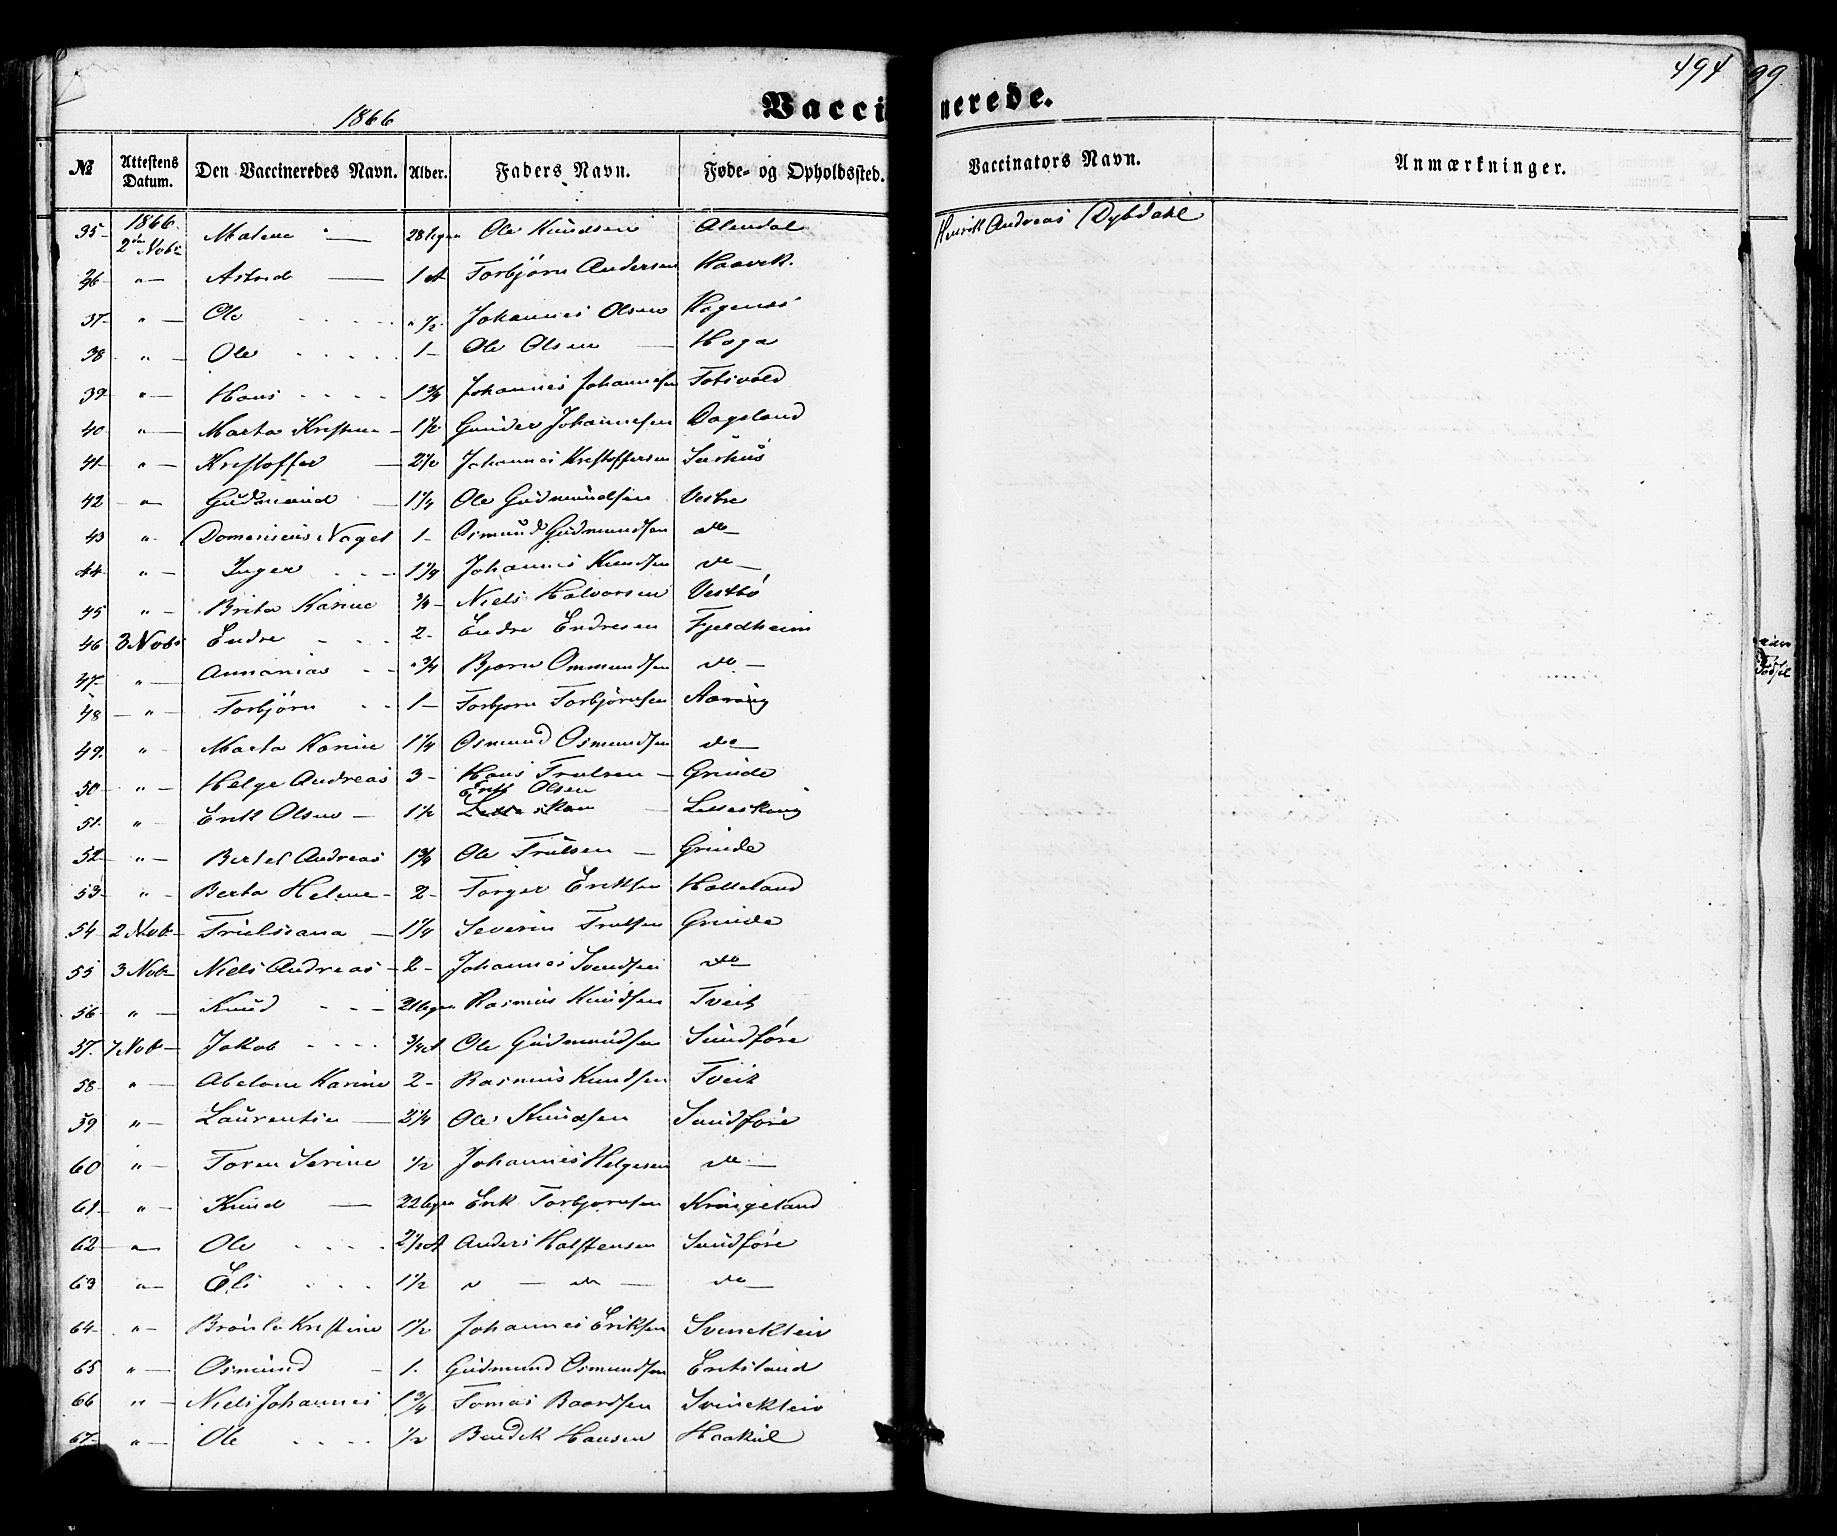 494
99
1866
Vaccinerede.
№ Attestens Datum. Den Vaccineredes Navn. Alder. Faders Navn. Føde- og Opholdssted. Vaccinators Navn. Anmærkninger.
35 1866 2den Nobr Malene — 28 Uger Ole Knudsen Alendal Henrik Andreas Dybdahl
36 " — Astrid — 1 A Torbjörn Andersen Haavek.
37 " — Ole " 1/2 Johannes Olsen Hagenæs
38 " — Ole 1 — Ole Olsen — Hoga
39 " — Hans 1 3/4 Johannes Johannesen Totsvold
40 " — Marta Kristine — 1 1/2 Gunder Johannesen Dagsland
41 " — Kristoffer — 2 1/2 Johannes Kristoffersen
42 " Gudmund — 1 1/4 Ole Gudmundsen Vestre
43 " Domenicus Nagel 1 — Osmund Gudmundsen do
44 " — Inger 1 1/4 Johannes Knudsen do —
45 " — Brita Karine 3/4 — Niels Halvorsen Vestbö
46 3 Nobr Endre 2 — Endre Endresen Fjeldheim
47 " — Annanias " 3/4 Bjørn Ommundsen do —
48 — " — Torbjörn 1 — Torbjorn Torbjörnsen Aarvig
49 " Marta Karine 1 1/4 Osmund Osmundsen do
50 " — Helge Andreas 3 — Hans Trulsen — Grinde
Erik Olsen
51 " — Erik Olsen — 1 1/2 — Leseskeng
52 " — Bertel Andreas 1 3/4 Ole Trulsen — Grinde
53 " — Berta Helene — 2 — Torger Eriksen Halleland
54 2 Nob — Trulsiana — 1 1/4 Severin Trulsen Grinde
55 3 Nob — Niels Andreas — 2 — Johannes Svendsen do
56 " — Knud 21 Uger Rasmus Knudsen Tveit
57 7 Nob — Jakob 3/4 A Ole Gudmundsen Sundföre
58 " — Abelone Karine 2 — Rasmus Knudsen Tveit
59 " — Laurentse — 2 1/4 Ole Knudsen Sundföre
60 " — Toren Serine 1/2 Johannes Helgesen do —
61 " — Knud — 22 Uger Erik Torbjornsen Krongeland
62 " Ole 2 1/2 A Anders Halstensen Sundföre
63 " — Eli 1 1/2 " — do — do —
64 " — Brönla Kristine 1 1/2 Johannes Eriksen Svinekleiv
65 " — Osmund — 1 Gudmund Osmundsen Eriksland
66 " — Niels Johannes 1 3/4 Tomas Baardsen Svinekleiv
67 " — Ole 1/2 Bendik Hansen Haakul